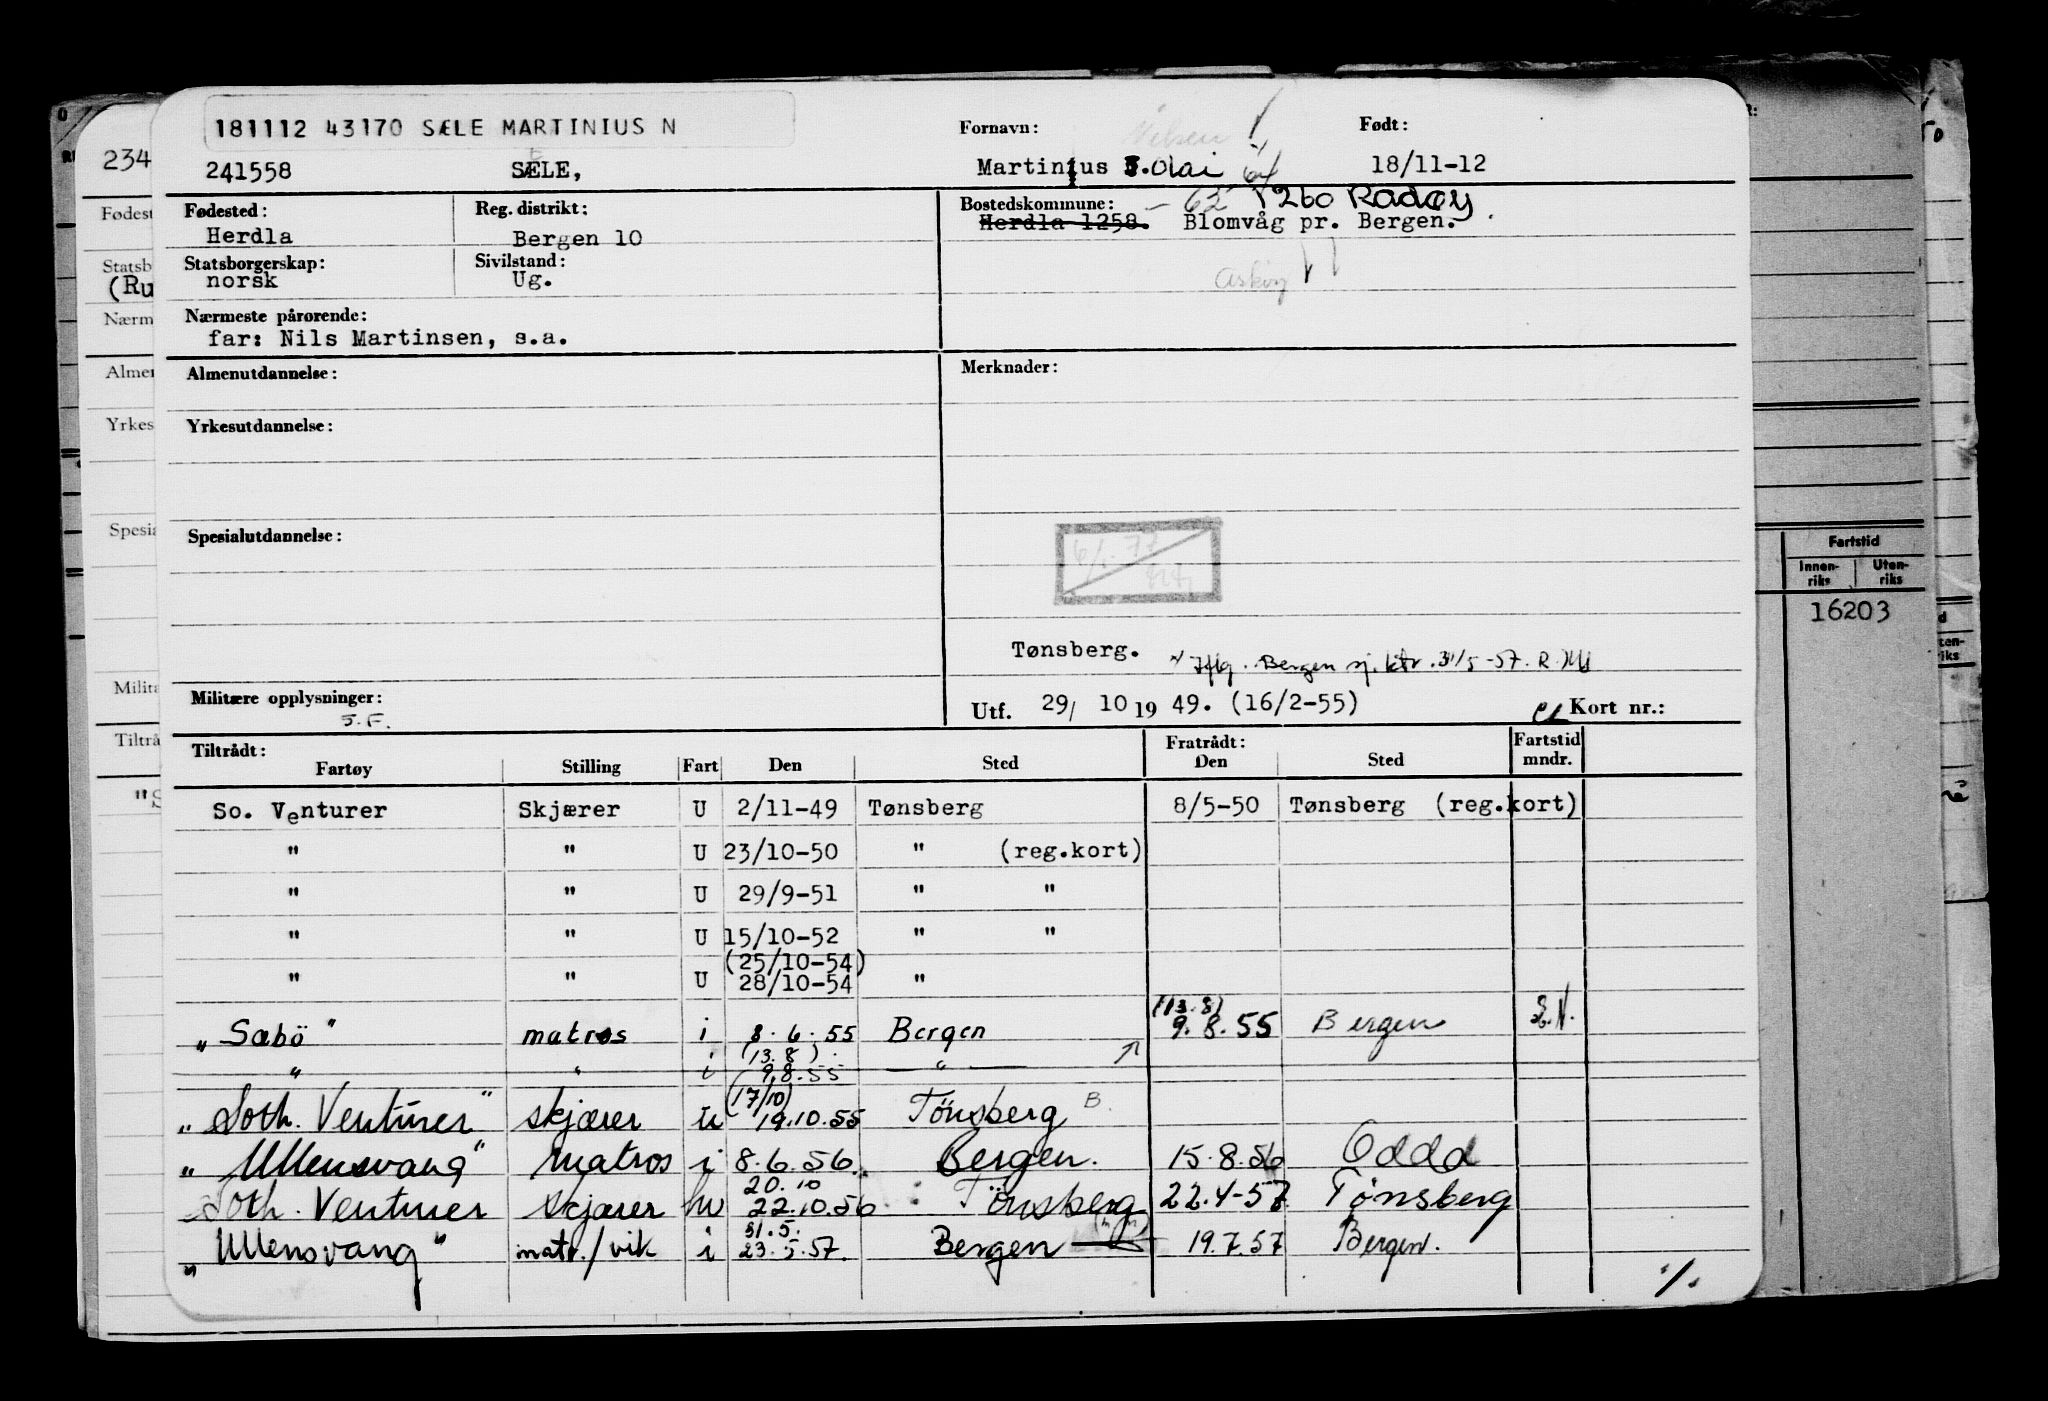 181112 43170 SÆLE MARTINIUS N
241558 SÆLE,
Fornavn: Nilsen
Martinius Olai 64
Født:
18/11-12
Fødested:
Herdla
Reg. distrikt:
Bergen 10
Bostedskommune: - 62 1260 Radøy
Herdla 1258. Blomvåg pr. Bergen.
Statsborgerskap:
norsk
Sivilstand:
Ug.
Askøy
Nærmeste pårørende:
far: Nils Martinsen, s.a.
Almenutdannelse:
Merknader:
Yrkesutdannelse:
Spesialutdannelse:
6/1.77
Tønsberg.
Bergen sj. ktr. 31/5-57.
Militære opplysninger:
S.F.
Utf. 29/ 10 19 49. (16/2-55)
Kort nr.:
Tiltrådt:
Fartøy Stilling Fart Den Sted
Fratrådt:
Den Sted
Fartstid
mndr.
So. Venturer Skjærer U 2/11-49 Tønsberg 8/5-50 Tønsberg (reg.kort)
" " U 23/10-50 " (reg.kort)
" " U 29/9-51 " "
" " U 15/10-52 " "
(25/10-54)
" " U 28/10-54 "
(13.8)
„Sæbö" matros i 8.6.55 Bergen 9.8.55 Bergen
(13.8)
" " i 9.8.55 — " —
(17/10)
„Soth. Venturer" skjærer u 19.10.55 Tönsberg B.
„Ullensvang" matros i 8.6.56. Bergen. 15.8.56 Odda
20.10
Soth. Venturer skjærer hv 22.10.56 Tönsberg 22.4-57 Tønsberg
31.5.
„Ullensvang" matr./vik i 23.5.57. Bergen 19.7.57 Bergen.
./.
234
Fødest
Statsb
(Ru
Nærm
Almen
Yrkes
Spesia
Milita
Tiltrå
"S
Fartstid
Innen-
riks
Uten-
riks
16203